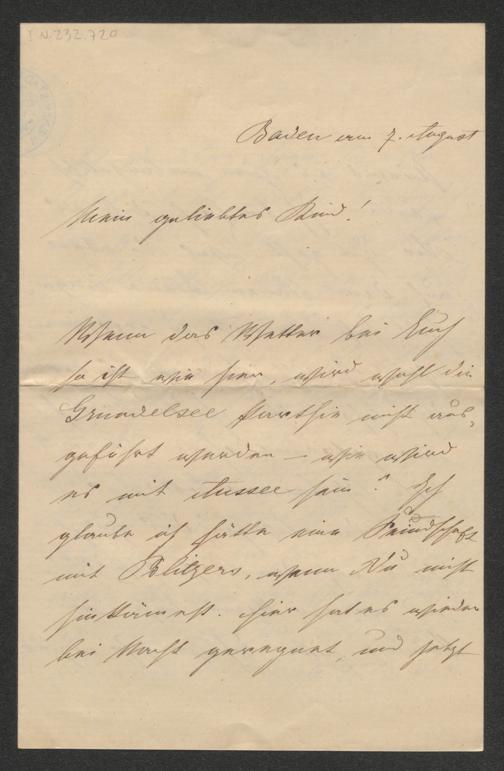 I.N. 232.720
Baden am 7. August
Mein geliebtes Kind!
Wenn das Wetter bei Euch
so ist wie hier, wird wohl die
Grundelsee Parthie nicht aus-
geführt werden – wie wird
es mit Aussee sein? Ich
glaube ich hätte eine Feindschaft
mit Politzers, wenn Du nicht
hinkämest. Hier hat es wieder
bei Nacht geregnet und jetzt